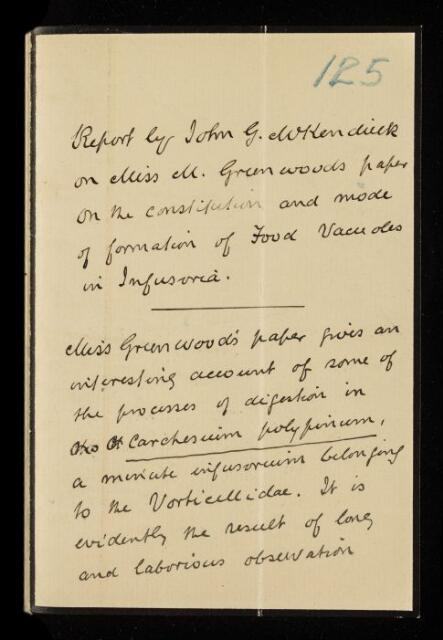 125
Report by John G. McKendrick
on Miss M. Greenwoods paper
on the constitution and mode
of formation of Food Vacuoles
in Infusoria.
Miss Greenwood's paper gives an
interesting account of some of
the processes of digestion in
Carchesium polypinum,
a minute infusorium belonging
to the Vorticellidae. It is
evidently the result of long
and laborious observation